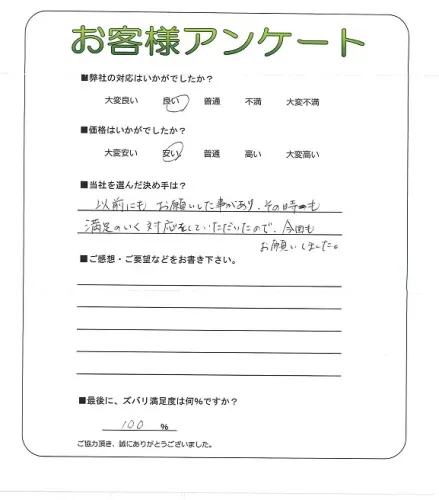 お客様アンケート
■弊社の対応はいかがでしたか？
大変良い 良い 普通 不満 大変不満
■価格はいかがでしたか？
大変安い 安い 普通 高い 大変高い
■当社を選んだ決め手は？
以前にもお願いした事があり、その時も
満足のいく対応をしていただいたので、今回も
お願いしました。
■ご感想・ご要望などをお書き下さい。
■最後に、ズバリ満足度は何％ですか？
100 ％
ご協力頂き、誠にありがとうございました。